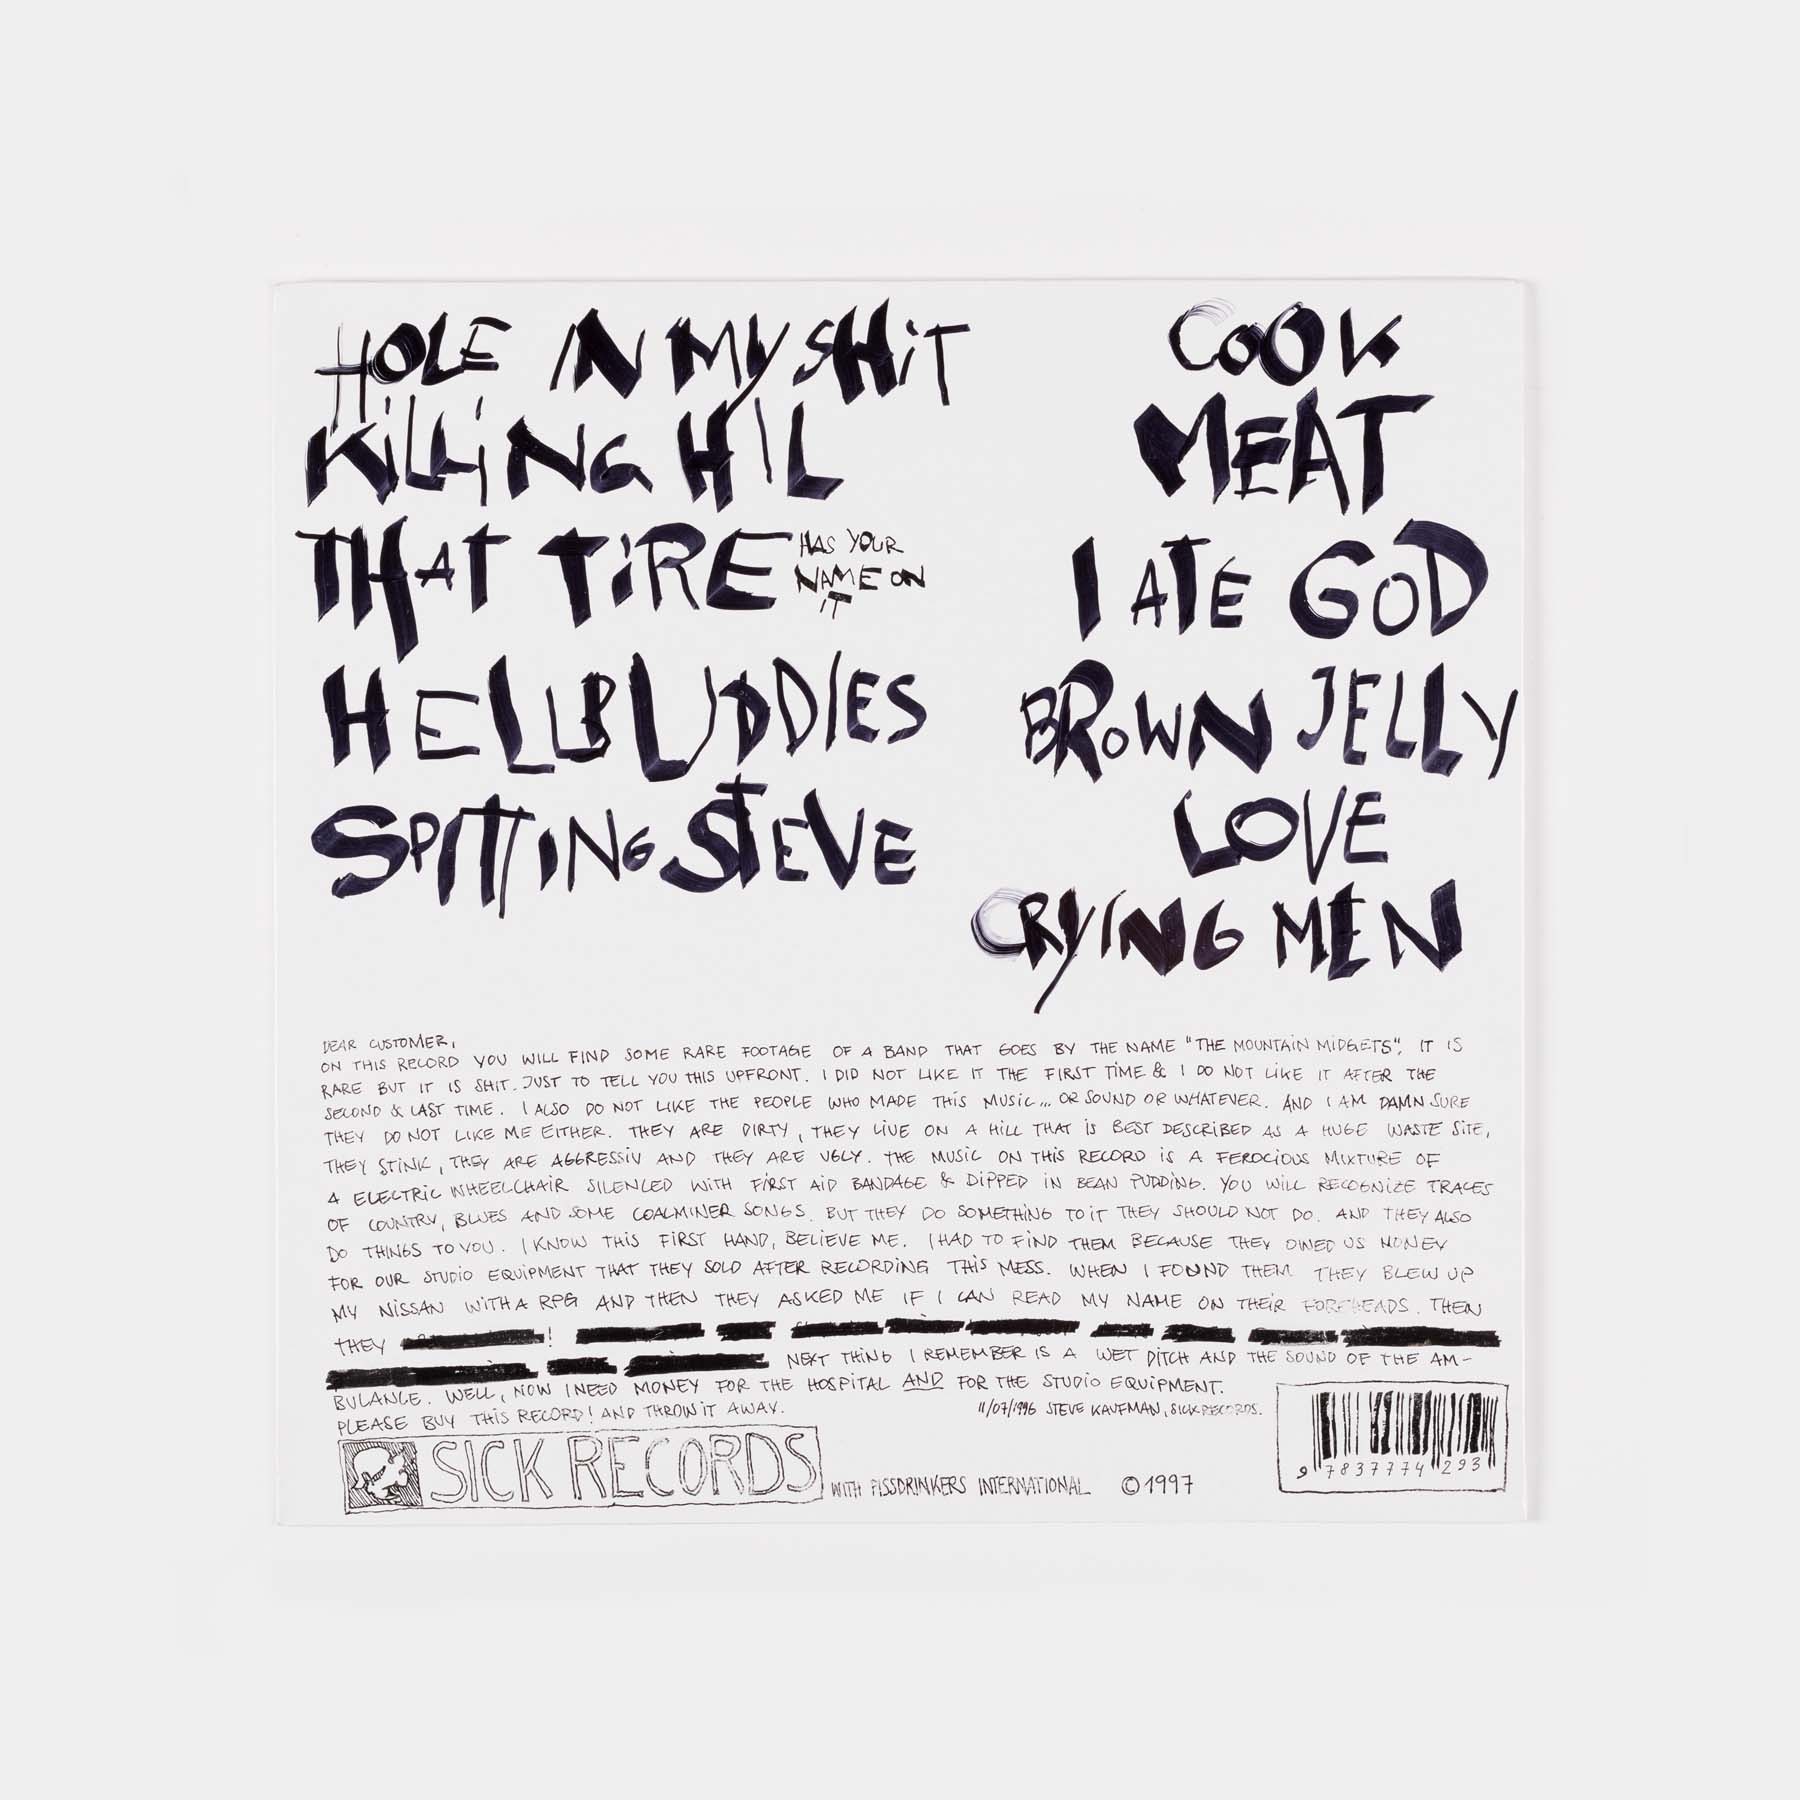 HOLE IN MY SHIT
KILLING HIL
THAT TIRE HAS YOUR
NAME ON
IT
HELLBUDDIES
SPITTING STEVE
COOK
MEAT
I ATE GOD
BROWN JELLY
LOVE
CRYING MEN
DEAR CUSTOMER,
ON THIS RECORD YOU WILL FIND SOME RARE FOOTAGE OF A BAND THAT GOES BY THE NAME "THE MOUNTAIN MIDGETS". IT IS
RARE BUT IT IS SHIT. JUST TO TELL YOU THIS UPFRONT. I DID NOT LIKE IT THE FIRST TIME & I DO NOT LIKE IT AFTER THE
SECOND & LAST TIME. I ALSO DO NOT LIKE THE PEOPLE WHO MADE THIS MUSIC... OR SOUND OR WHATEVER. AND I AM DAMN SURE
THEY DO NOT LIKE ME EITHER. THEY ARE DIRTY, THEY LIVE ON A HILL THAT IS BEST DESCRIBED AS A HUGE WASTE SITE,
THEY STINK, THEY ARE AGGRESSIV AND THEY ARE UGLY. THE MUSIC ON THIS RECORD IS A FEROCIOUS MIXTURE OF
A ELECTRIC WHEELCHAIR SILENCED WITH FIRST AID BANDAGE & DIPPED IN BEAN PUDDING. YOU WILL RECOGNIZE TRACES
OF COUNTRY, BLUES AND SOME COALMINER SONGS. BUT THEY DO SOMETHING TO IT THEY SHOULD NOT DO. AND THEY ALSO
DO THINGS TO YOU. I KNOW THIS FIRST HAND, BELIEVE ME. I HAD TO FIND THEM BECAUSE THEY OWED US MONEY
FOR OUR STUDIO EQUIPMENT THAT THEY SOLD AFTER RECORDING THIS MESS. WHEN I FOUND THEM THEY BLEW UP
MY NISSAN WITH A RPG AND THEN THEY ASKED ME IF I CAN READ MY NAME ON THEIR FOREHEADS. THEN
THEY !
NEXT THING I REMEMBER IS A WET DITCH AND THE SOUND OF THE AM-
BULANCE. WELL, NOW I NEED MONEY FOR THE HOSPITAL AND FOR THE STUDIO EQUIPMENT.
PLEASE BUY THIS RECORD! AND THROW IT AWAY. 11/07/1996 STEVE KAUFMAN, SICK RECORDS.
SICK RECORDS WITH PISSDRINKERS INTERNATIONAL ©1997
9 7837774 293